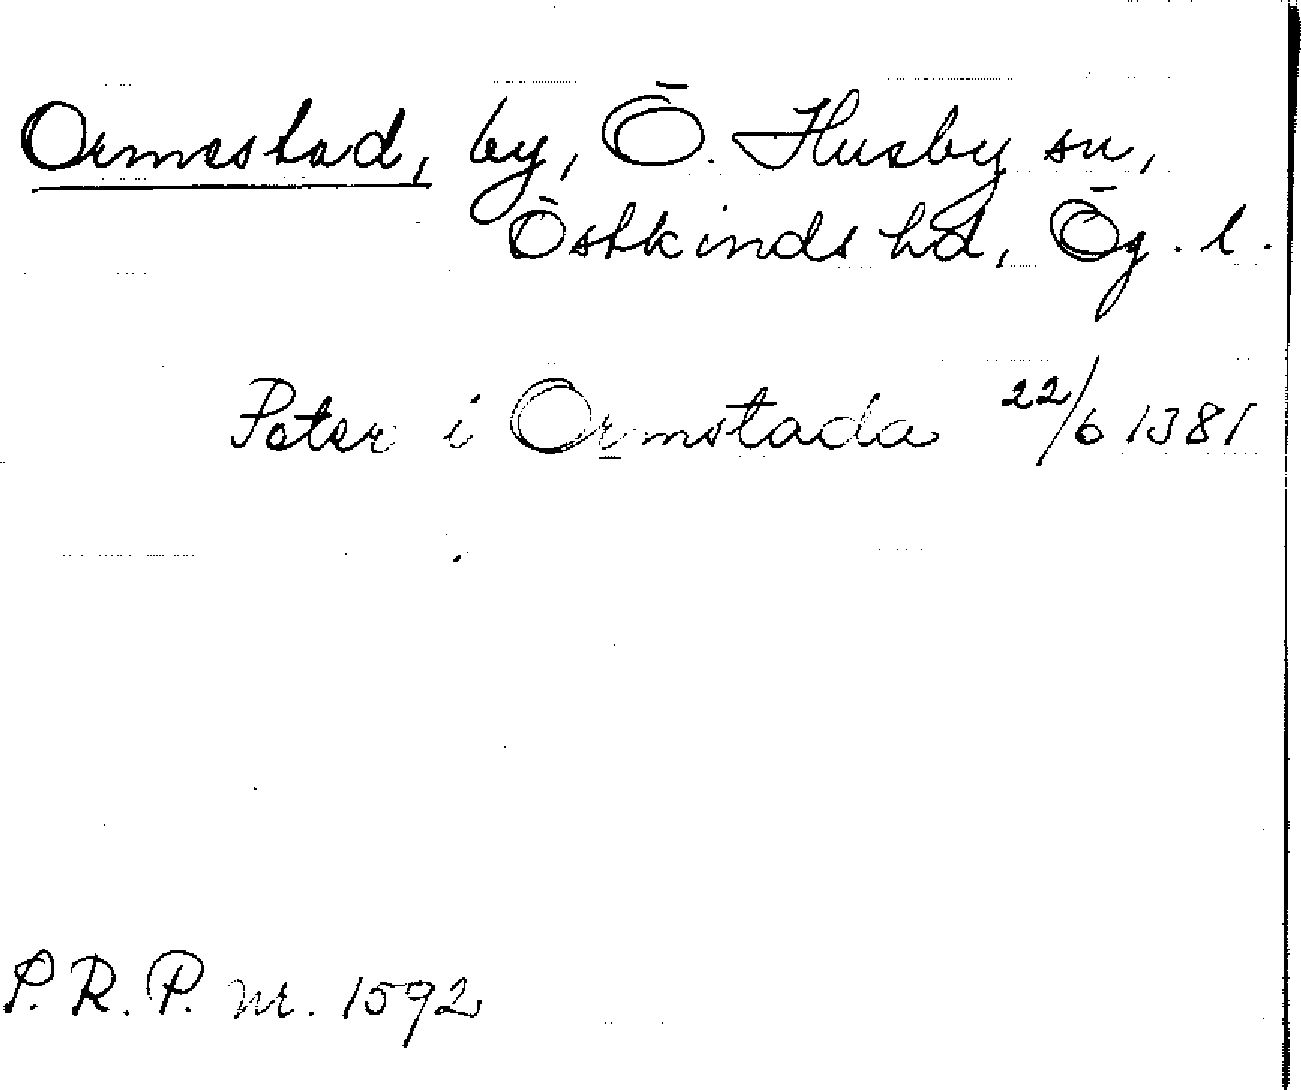 Ormestad, by, Ö. Husby sn,
Östkinds hd, Ög. l.
Peter i Ormstada 22/6 1381
P. R. P. nr. 1592